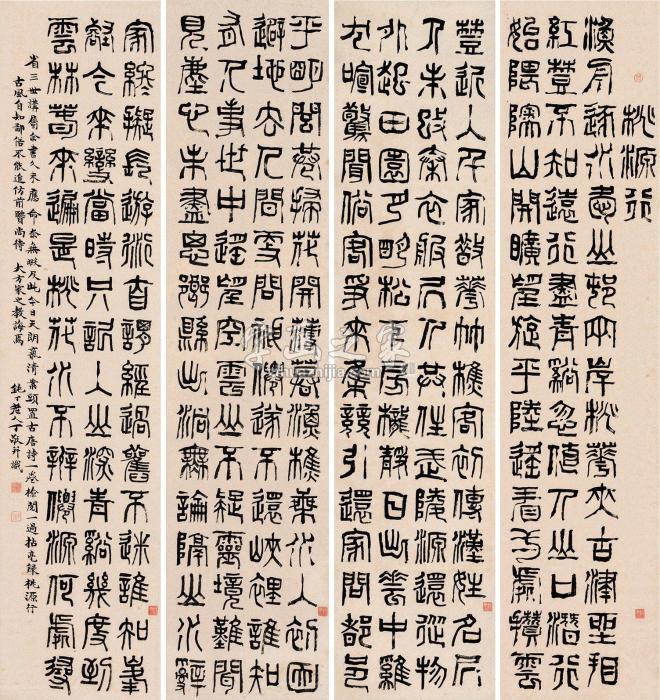 桃源行
漁舟逐水愛山邨兩岸桃華夾古津坐相
紅豎不知遠行盡青谿忽值人山口潛行
始隈隩山開曠望旋平陸遙看一處攢雲
豎近入千家散華竹樵客初傳漢姓名居
人未改秦衣服居人共住武陵源還從物
外起田園月明松下房櫳靜日出雲中雞
犬喧驚聞俗客爭來集競引還家問都邑
平明閭巷掃花開薄暮漁樵乘水入初因
避地去人間更問神僊遂不還峽裡誰知
有人事世中遙望空雲山不疑靈境難聞
見塵心未盡思鄉縣出洞無論隔山水辭
家終擬長遊衍自謂經過舊不迷誰知峯
壑今來變當時只記入山深青谿幾度到
雲林春來遍是桃花水不辨僊源何處尋
省三世講屬余書久未應命奈無暇及此今日天朗氣清案頭置古唐詩一卷檢閱一過拈毫錄桃源行
古風自知鄙俗不能追仿前賢尚待大方家之教誨焉 鈍丁老人丁敬并識